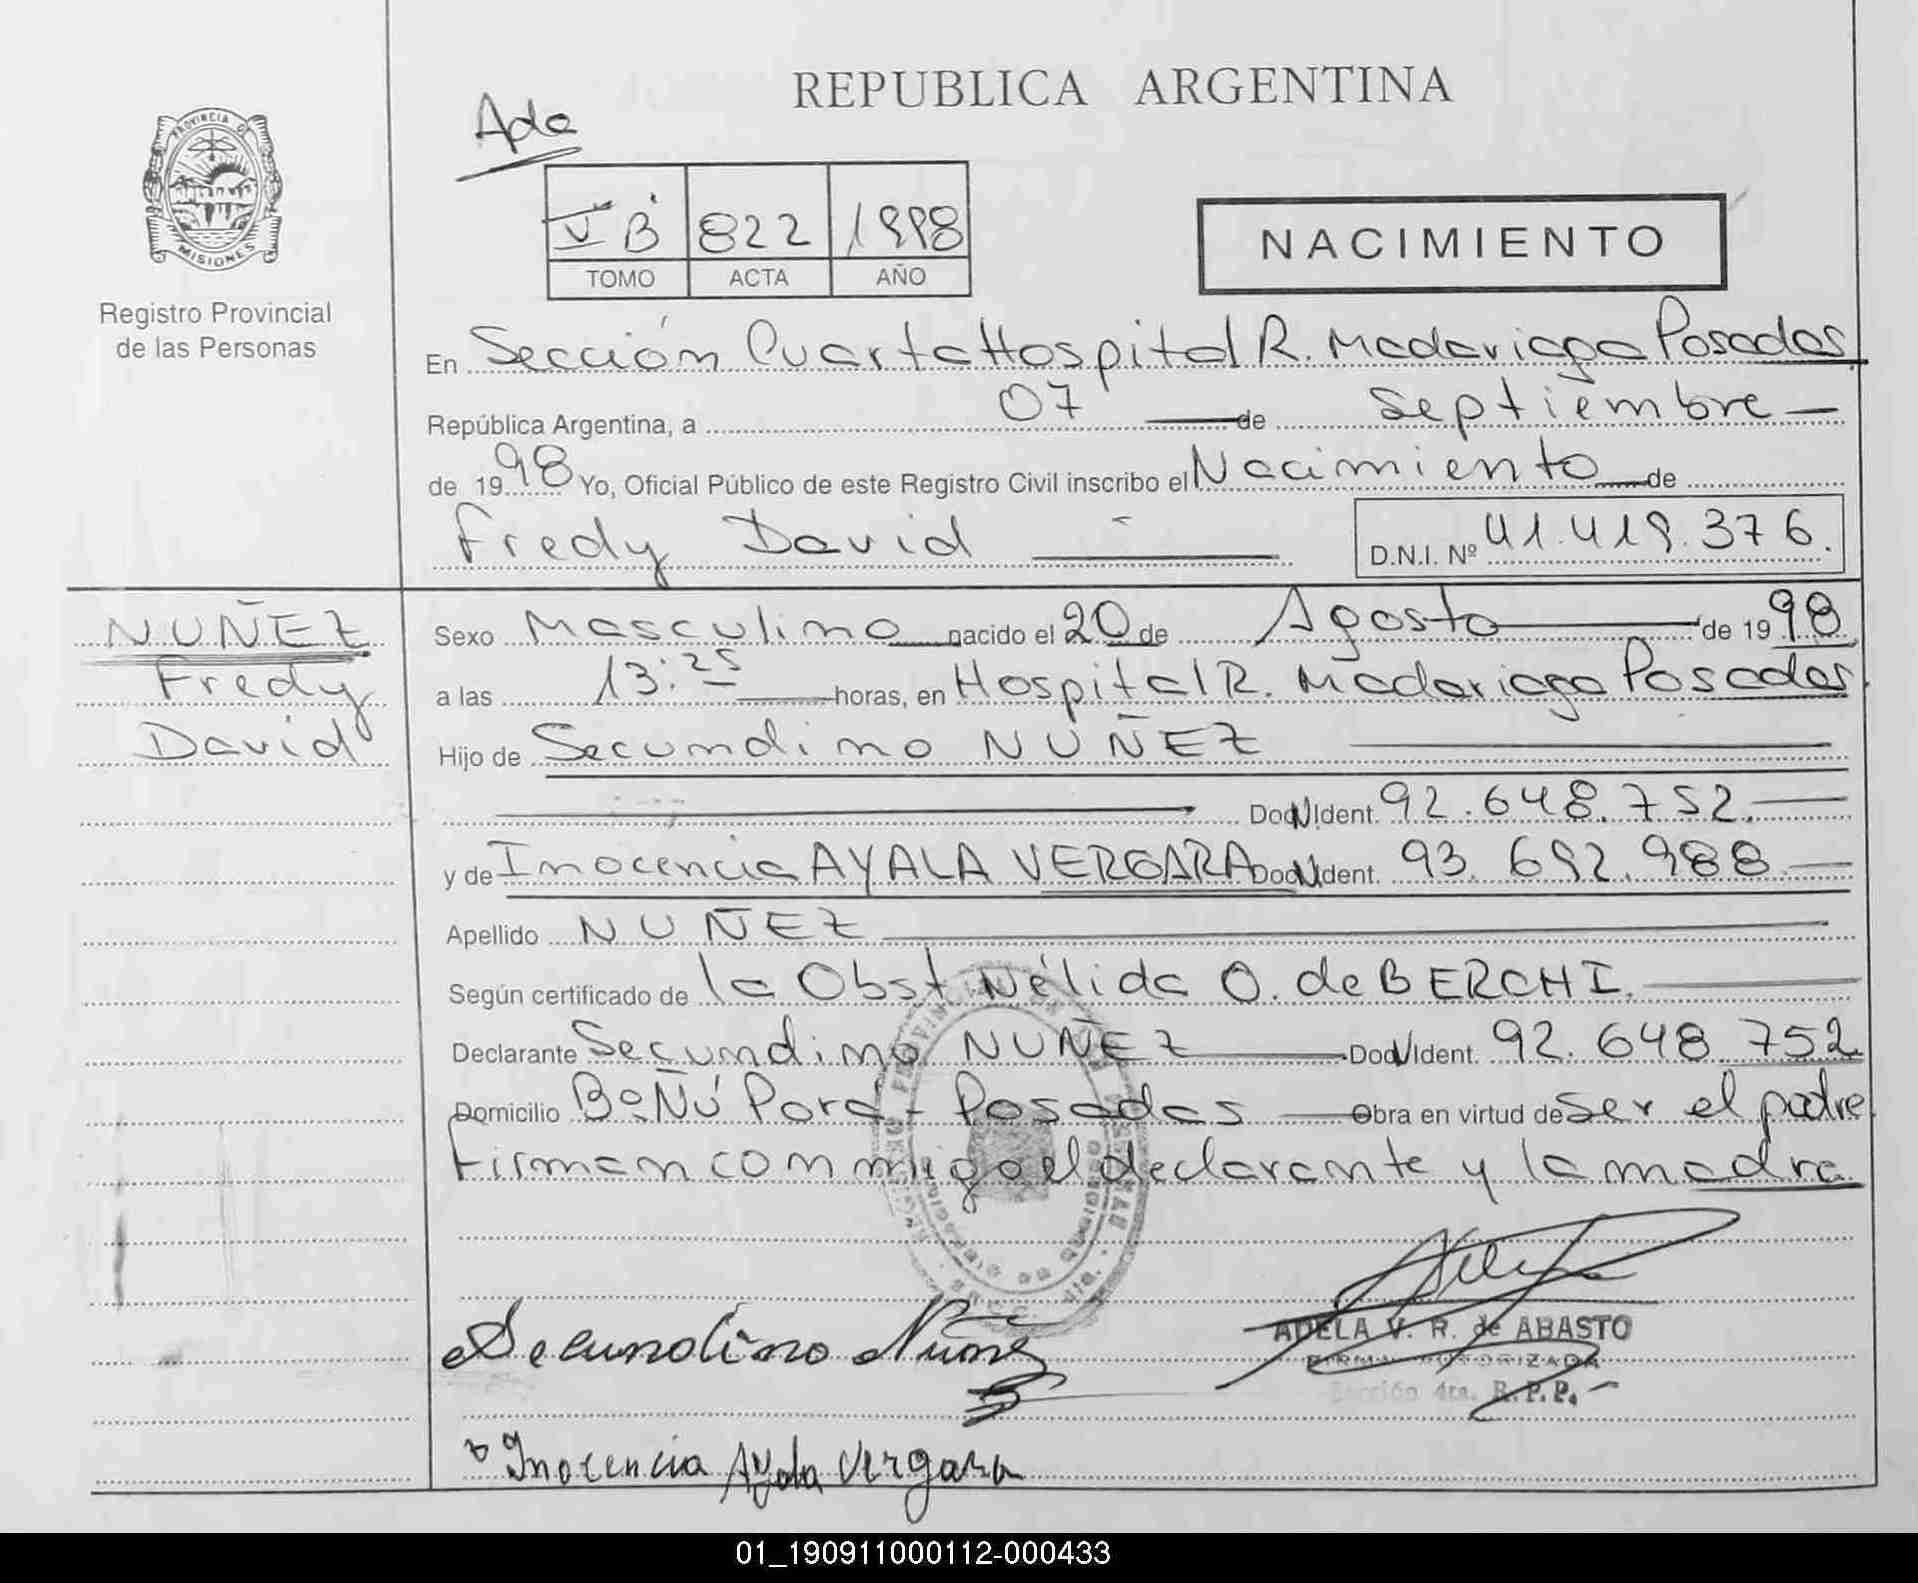 REPUBLICA ARGENTINA
Ada
PROVINCIA D
MISIONES
V B 822 1998
TOMO ACTA AÑO
NACIMIENTO
Registro Provincial
de las Personas
En Sección Cuarta Hospital R. Madariaga Posadas
República Argentina, a 07 de Septiembre
de 1998 Yo, Oficial Público de este Registro Civil inscribo el Nacimiento de
Fredy David D.N.I. Nº 41.419.376.
NUÑEZ
Fredy
David
Sexo Masculino nacido el 20 de Agosto de 1998
a las 13:25 horas, en Hospital R. Madariaga Posadas
Hijo de Secundino NUÑEZ
Doc. Ident. 92.648.752.
y de Inocencia AYALA VERGARA Doc. Ident. 93.692.988
Apellido NUÑEZ
Según certificado de la Obst Nélida O. de BERCHI.
Declarante Secundino NUÑEZ Doc. Ident. 92.648 752
Domicilio Bº Ñú Porá - Posadas Obra en virtud de Ser el padre
Firman conmigo el declarante y la madre
Secundino Nuñez
ADELA V. R. de ABASTO
FIRMA AUTORIZADA
Sección 4ta. R.P.P.
Inocencia Ayala Vergara
01_190911000112-000433